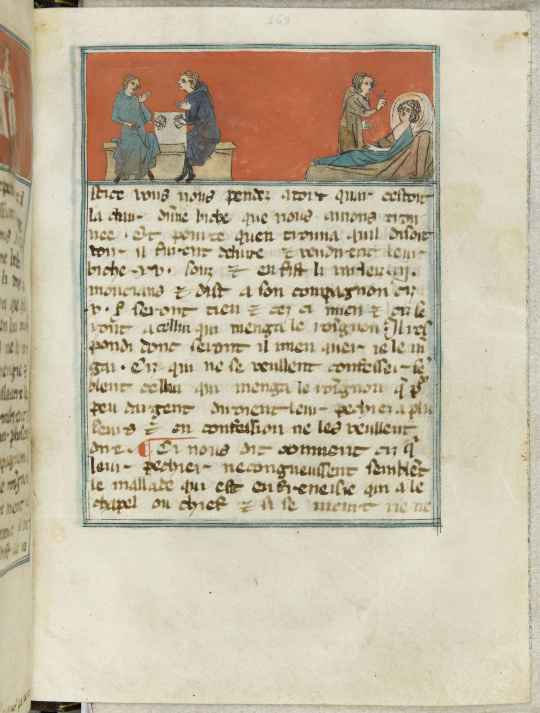 463
stice vous nous pendez a tort quar cestoit
la char dune biche que nous auions trou
uee. Et pour ce quen trouua quil disoit
voir il furent deliure et vendirent leur
biche .xv. souz et en fist li
monciaus et dist a son compaignon cil
.v. s seront tien et cez ci mien et cil se
ront a cellui qui menga le roignon Il res
pondi donc seront il mien quer ie le m
gai. Cil qui ne se veullent confesser se
blent cellui qui menga le roignon q̃ p̃
peu dargent diroient leur pechiez a plu
seurs et en confession ne les veullent
dire. Ci nous dit comment cil q̃
leur pechiez ne congneuissent semblet
le mallade qui est en freneisie qui a le
chapel ou chief et il se meurt ne ne